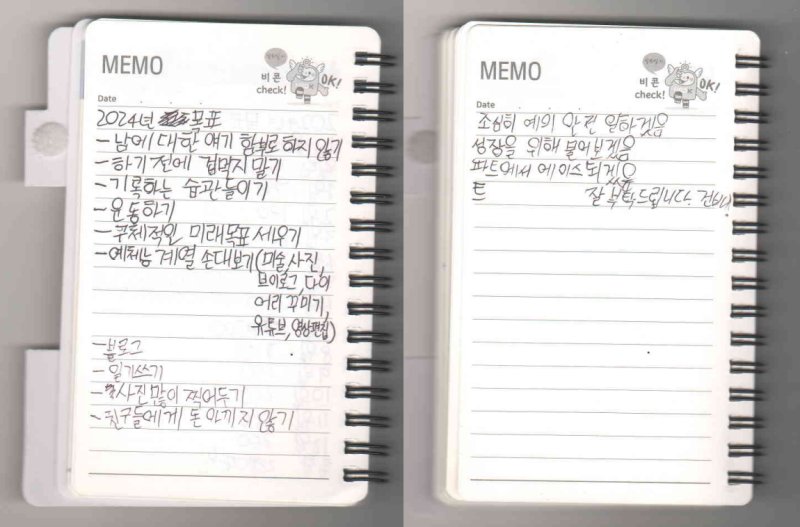 MEMO
비콘
check!
OK!
Date
2024년 목표
- 남에 대한 얘기 함부로 하지 않기
- 하기 전에 겁먹지 말기
- 기록하는 습관들이기
- 운동하기
- 구체적인 미래목표 세우기
- 예체능 계열 손대보기(미술,사진,
브이로그,다이
어리 꾸미기,
유튜브,영상편집)
- 블로그
- 일기쓰기
- 사진많이 찍어두기
- 친구들에게 돈 아끼지 않기
MEMO
비콘
check!
OK!
Date
조심히 예의 안
일하겠음
성장을 위해
파트에서 에이스되겠음
트
잘 부탁드립니다.